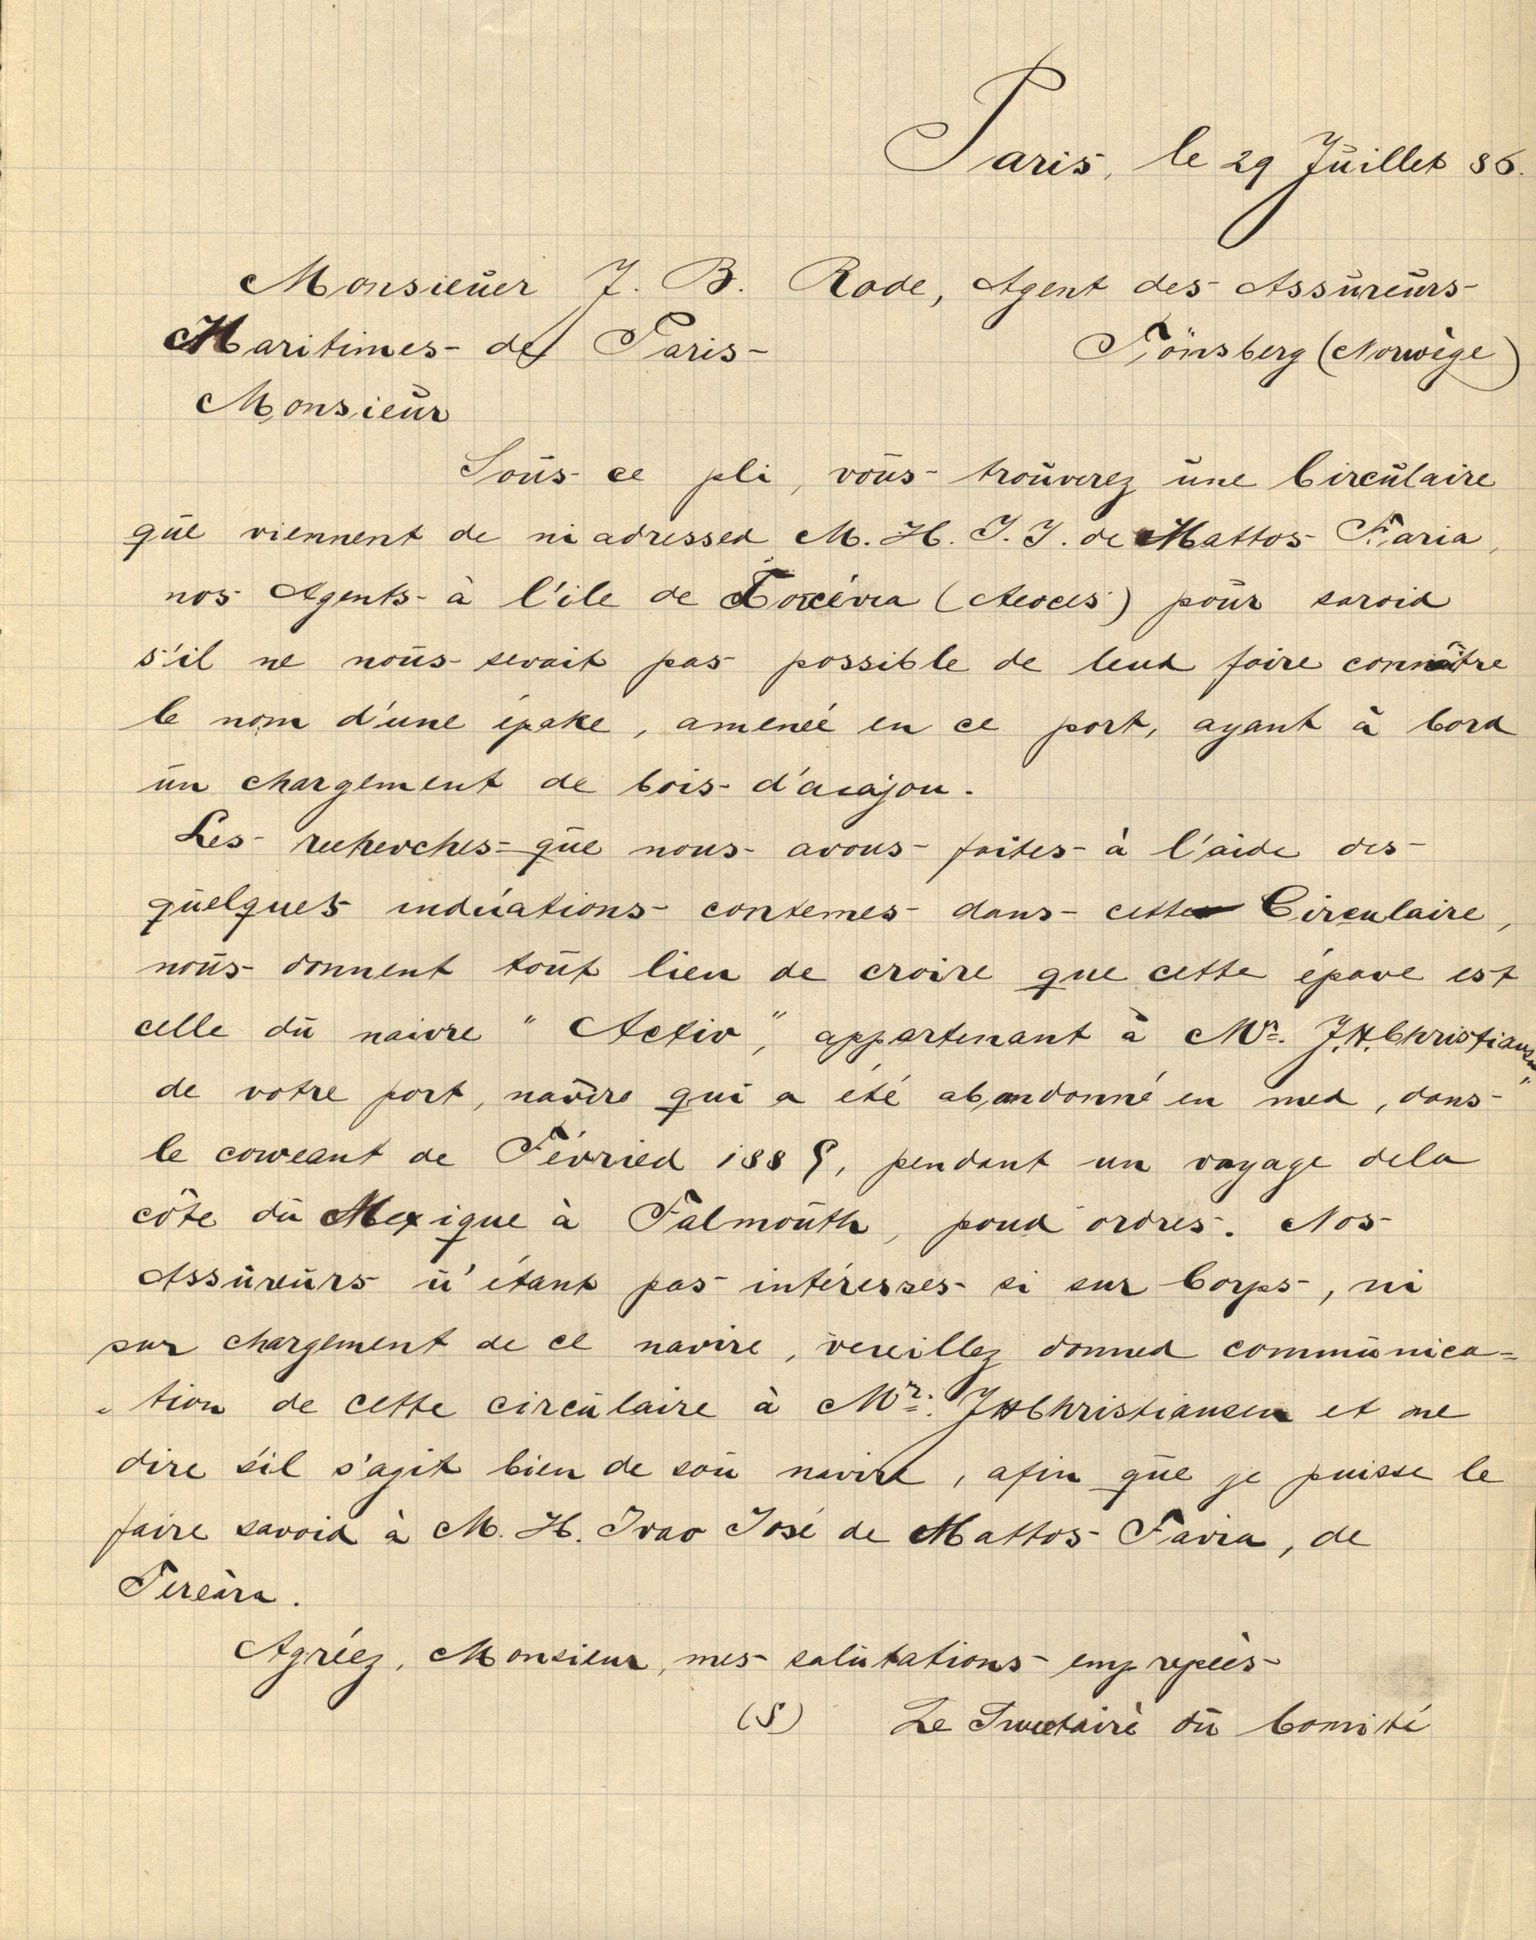 Paris, le 29 Juillet 86.
Monsieuer J. B. Rode, Agent des Assureurs
Maritimes de Paris
Tönsberg (Norwège)
Monsieur
Sous ce pli, vous trouverez une Circulaire
que viennent de m'adresser M. H. J. J. de Mattos Faria,
nos Agents à l'ile de (Acoces) pour savoir
s'il ne nous serait pas possible de leur faire connaître
le nom d'une épake, amenéé en ce port, ayant à bord
un chargement de bois d'acajou.
Les recherches que nous avons faites à l'aide des
quelques indications contemes dans cette Circulaire,
nous donnent tout lieu de croire que cette épave est
celle du naivre "Activ", appartenant à Mr. J.H.Christiansen,
de votre port, navire qui a été abandonné en mer, dans
le coureant de Février 1885, pendant un voyage dela
côte du Mexique à Falmouth, pour ordres. Nos
Assureurs n'étant pas intéresses si sur Corps, ni
sur chargement de ce navire, vereillez donner communica=
=tion de cette circulaire à Mr. JHChristiansen et me
dire s'il s'agit bien de son navire, afin que je puisse le
faire savoir à M. H. Ivao José de Mattos Favia, de
Tereära.
Agréez, Monsieur, mes salutations
(S) Le du Comité